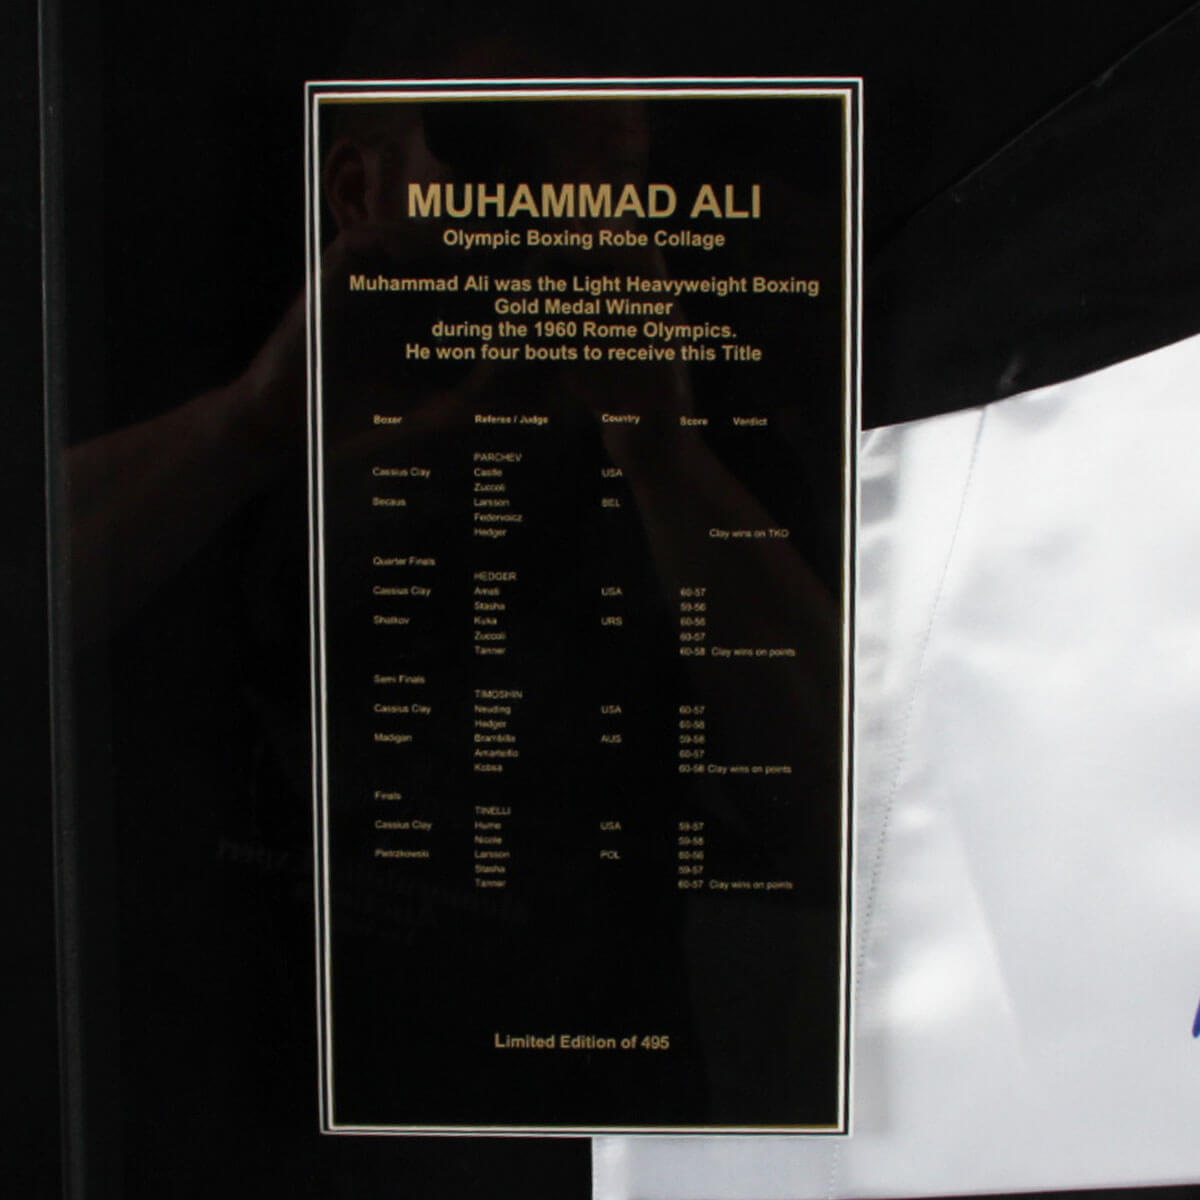 MUHAMMAD ALI
Olympic Boxing Robe Collage
Muhammad Ali was the Light Heavyweight Boxing
Gold Medal Winner
during the 1960 Rome Olympics.
He won four bouts to receive this Title
Boxer Referee / Judge Country Score Verdict
PARCHEV
Cassius Clay Castle USA
Zuccoli
Becaus Larsson BEL
Federvoicz
Hedger Clay wins on TKO
Quarter Finals
HEDGER
Cassius Clay Amati USA 60-57
Stasha 59-56
Shatkov Kuka URS 60-56
Zuccoli 60-57
Tanner 60-58 Clay wins on points
Semi Finals
TIMOSHIN
Cassius Clay Neuding USA 60-57
Hedger 60-58
Madigan Brambilla AUS 59-58
60-57
Kobsa 60-58 Clay wins on points
Finals
TINELLI
Cassius Clay Hume USA 59-57
Nicole 59-58
Pietrzkowski Larsson POL 60-56
Stasha 59-57
Tanner 60-57 Clay wins on points
Limited Edition of 495